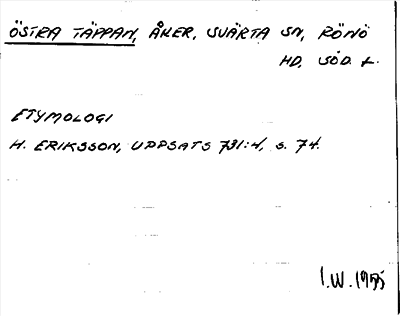 ÖSTRA TÄPPAN, ÅKER, SVÄRTA SN, RÖNÖ
HD, SÖD. L.
ETYMOLOGI
H. ERIKSSON, UPPSATS 731:4, S. 74.
I.W. 1955